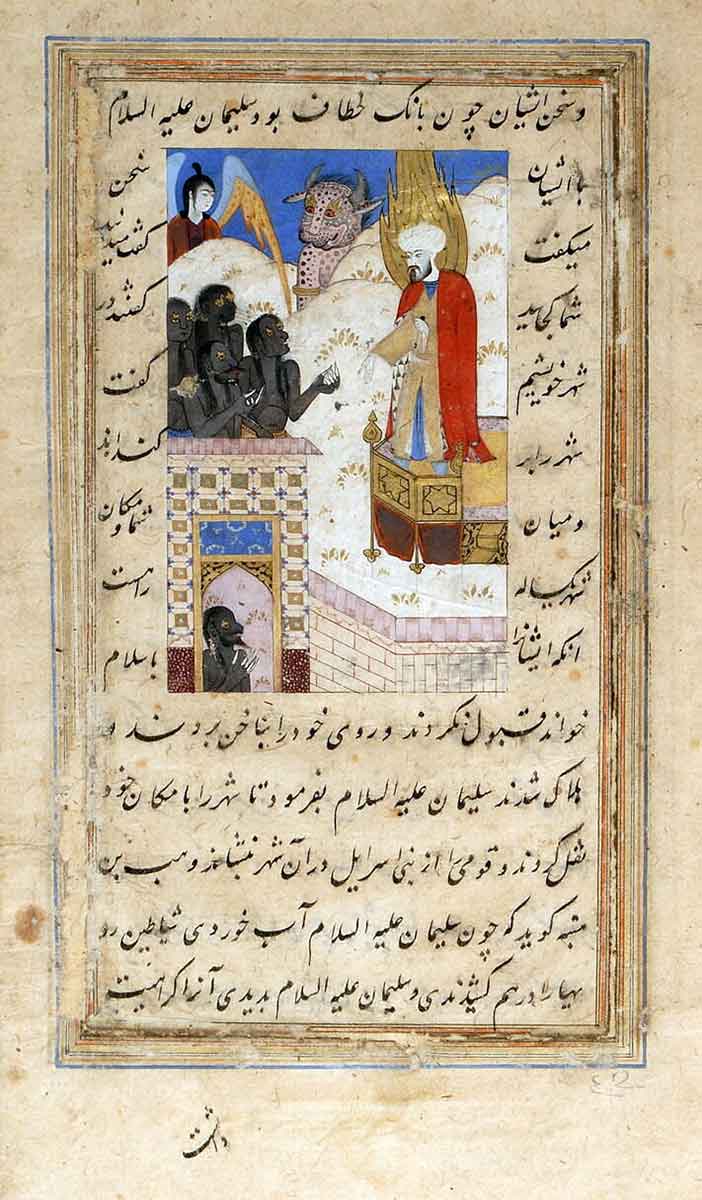 و سخن ایشان چون بانک خطاف بود و سلیمان علیه السلام
با ایشان سخن
میکفت کفت
شما کجایید کفتند در
شهر خویشیم کفت
شهر را بر کنداند
و میان شما و مکان
شهر یکساله راهست
انکه ایشانرا باسلام
خواند قبول نکردند و روی خود را بناخن بردند و
هلاک شدند سلیمان علیه السلام بفرمود تا شهر را با مکان خود
نقل کردند و قومی را از بنی اسرایل در آن شهر بنشاند وهب بن
منبه کوید که چون سلیمان علیه السلام آب خوردی شیاطین رو
یها را در هم کشیدندی و سلیمان علیه السلام بدیدی آنرا کراهیت
داشت